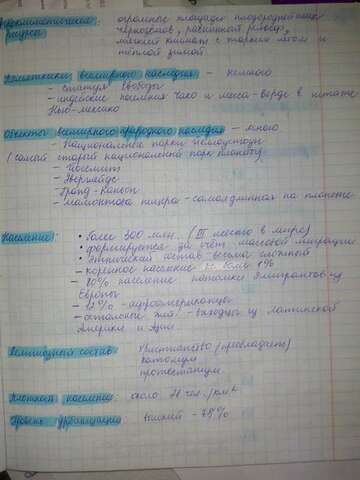 Агроклиматические огромные площади плодороднейших
ресурсы чернозёмов, равнинный рельеф,
мягкий климат с жарким летом и
тёплой зимой
Памятники всемирного наследия - немного
- статуя Свободы
- индейские поселения Чако и Меса-Верде в штате
Нью-Мексико
Объекты всемирного природного наследия - много
- Национальный парки Йеллоустоун
(самый старый национальный парк планеты)
- Йосемити
- Эверглейдс
- Гранд-Каньон
- Мамонтова пещера - самая длинная на планете
Население:
• более 300 млн. (III место в мире)
• формируется за счёт массовой миграции
• этнический состав весьма сложный
- коренное население 1%
- 80% население потомки эмигрантов из
Европы
- 12% - афроамериканцы
- остальные - выходцы из Латинской
Америки и Азии
Религиозный состав христианство (преобладает)
католицизм
протестантизм
Плотность населения: около 31 чел./км²
Уровень урбанизации высокий - 75%